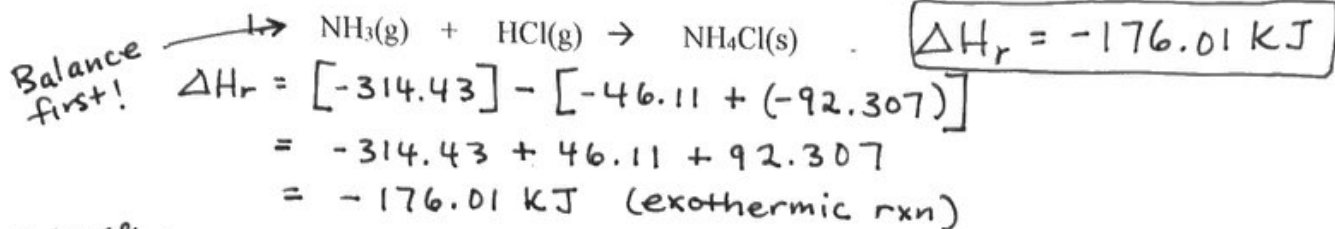 Balance first!
1. NH₃(g) + HCl(g) → NH₄Cl(s)
ΔHᵣ = -176.01 KJ
ΔHᵣ = [-314.43] - [-46.11 + (-92.307)]
= -314.43 + 46.11 + 92.307
= -176.01 KJ (exothermic rxn)